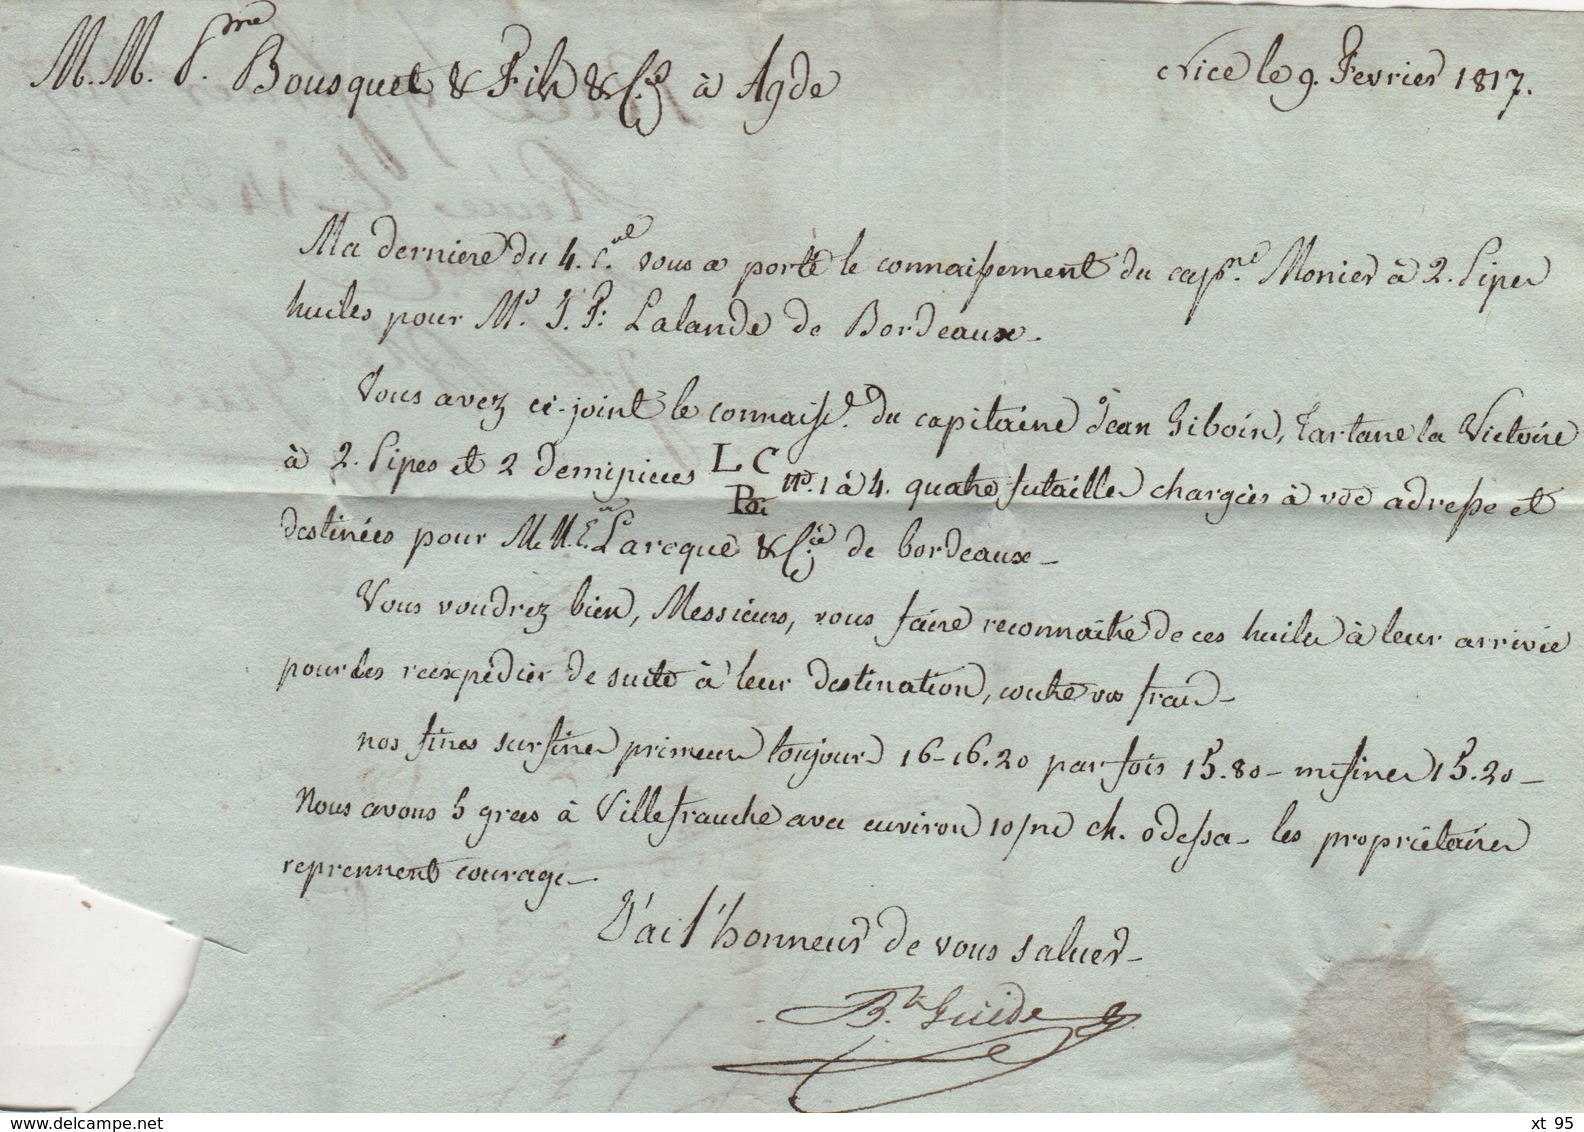 M.M. P.me Bousquet & Fils & C.ie à Agde
Nice le 9. Fevrier 1817.
Ma derniere du 4. c.nt vous a porté le connaissement du cap.ne Monier à 2. Pipes
huiles pour M.r J. P. Lalande de Bordeaux.
Vous avez ci-joint le connaiss.t du capitaine Jean Giboin, Tartane la Victoire
à 2. Pipes et 2 demipieces L C n.o 1 à 4. quatre futailles chargées à vôe adresse et
destinées pour M.M. Laroque & C.ie de bordeaux_
Vous voudrez bien, Messieurs, vous faire reconnaitre de ces huiles à leur arrivée
pour les reexpédier de suite à leur destination, contre vos frais_
nos fines surfines primeurs toujours 16-16.20 par fois 15.80_ mifines 15.20_
Nous avons 5 grecs à Villefranche avec environ 10/m ch. odessa_ les propriétaires
reprennent courage_
J'ai l'honneur de vous saluer_
Guide
www.delcampe.net
xt 95